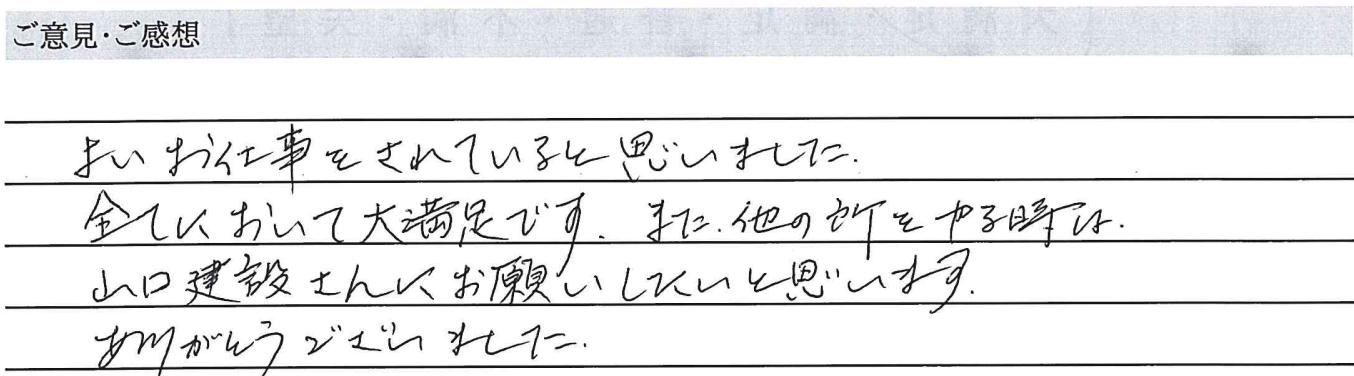 ご意見・ご感想
よいお仕事をされていると思いました.
全てにおいて大満足です. また.他の所をやる時は.
山口建設さんにお願いしたいと思います.
ありがとうございました.